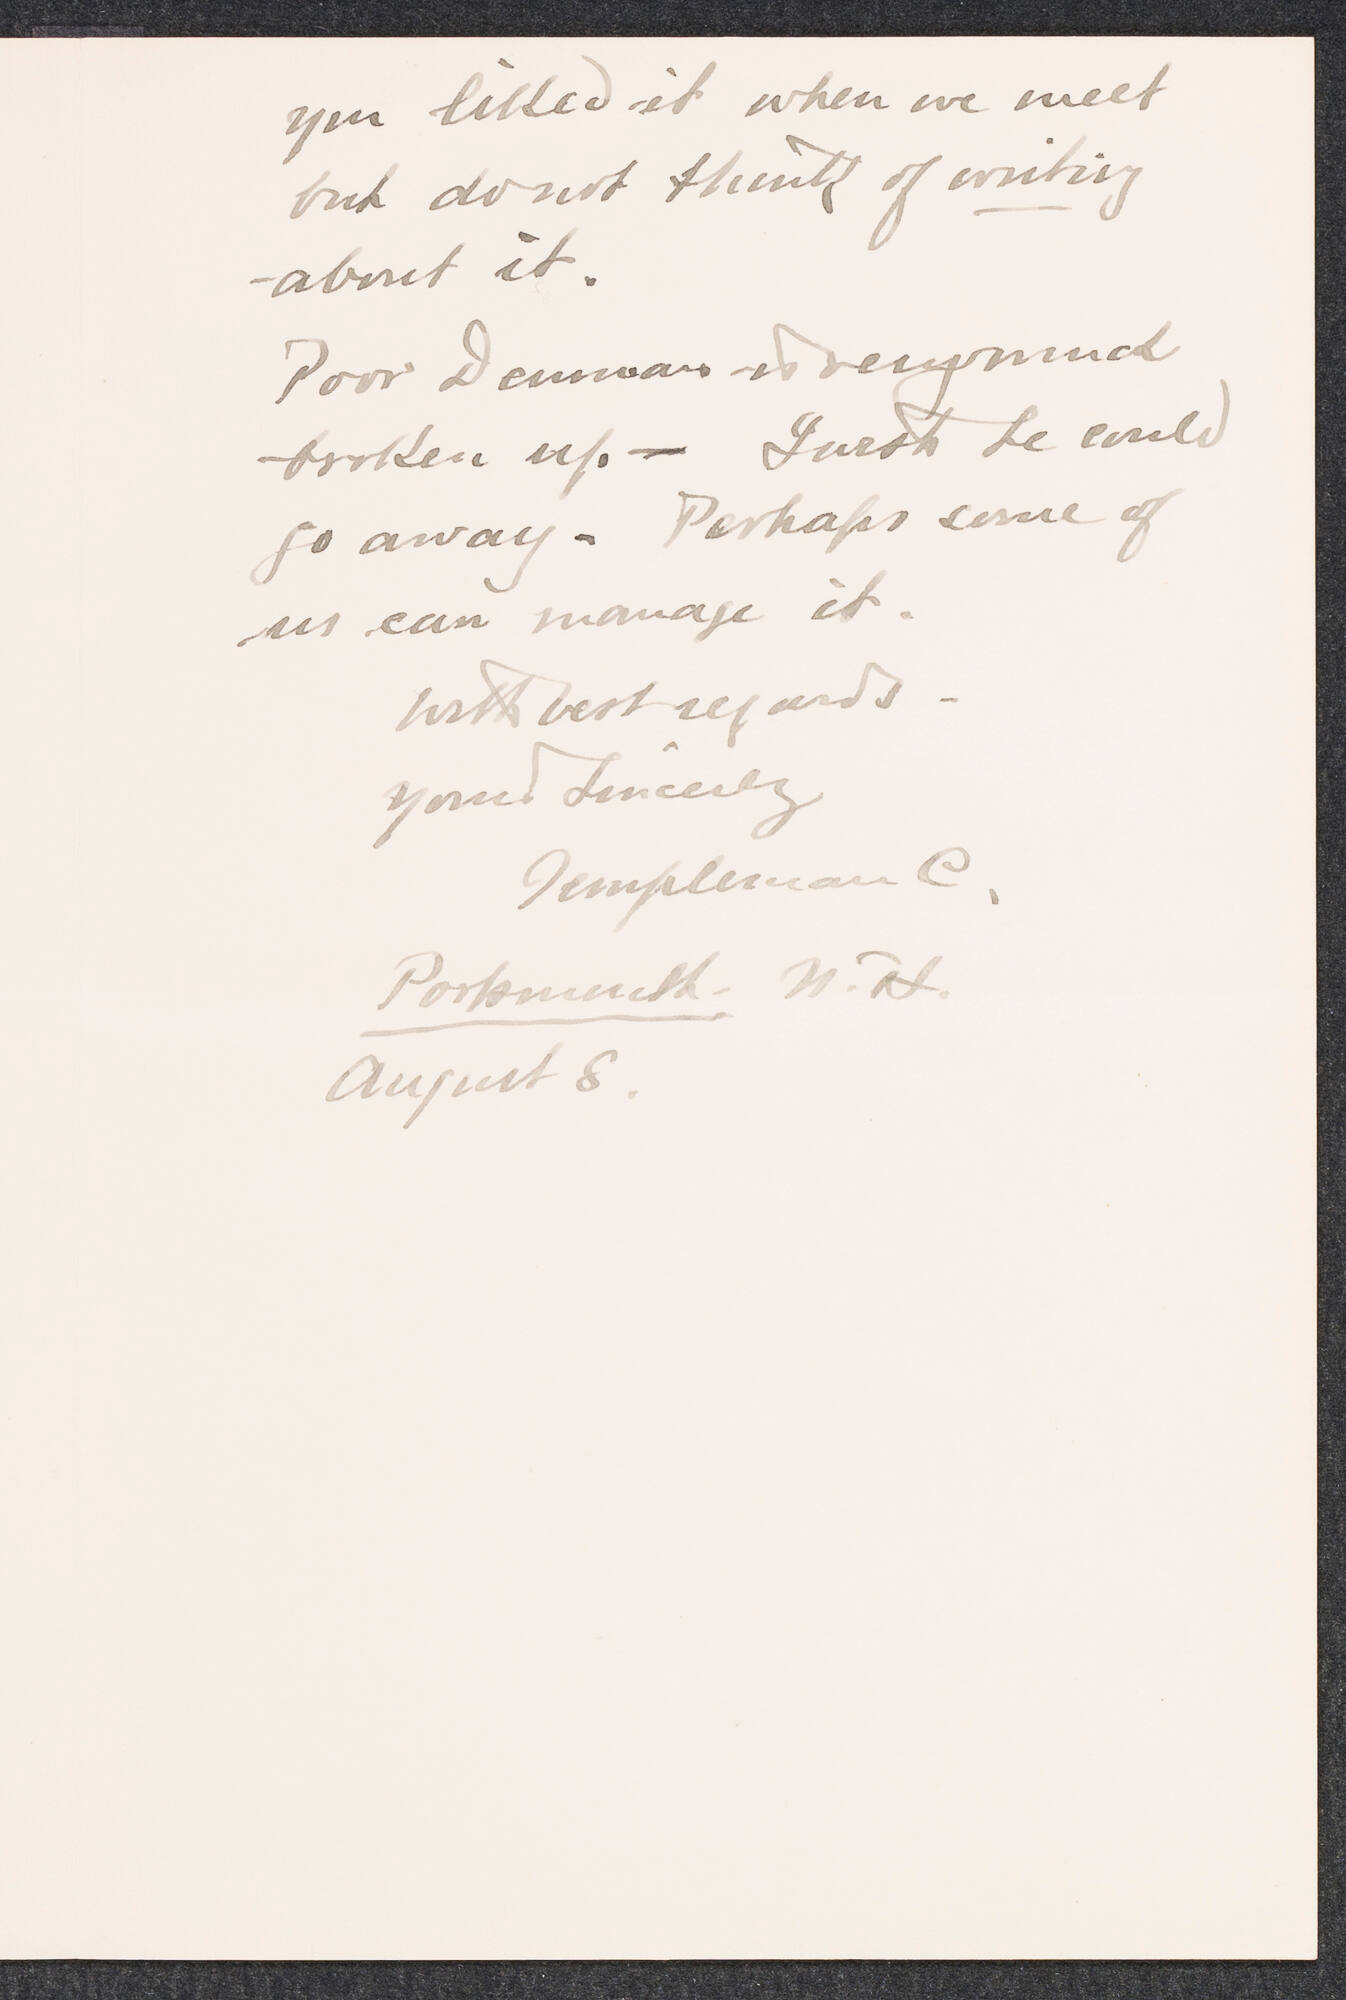 you liked it when we meet
but do not think of writing
about it.
Poor Denman is very much
broken up — I wish he could
go away - Perhaps some of
us can manage it.
With best regards -
Yours Sincerely
Templeman C.
Portsmouth - N.H.
August 8.